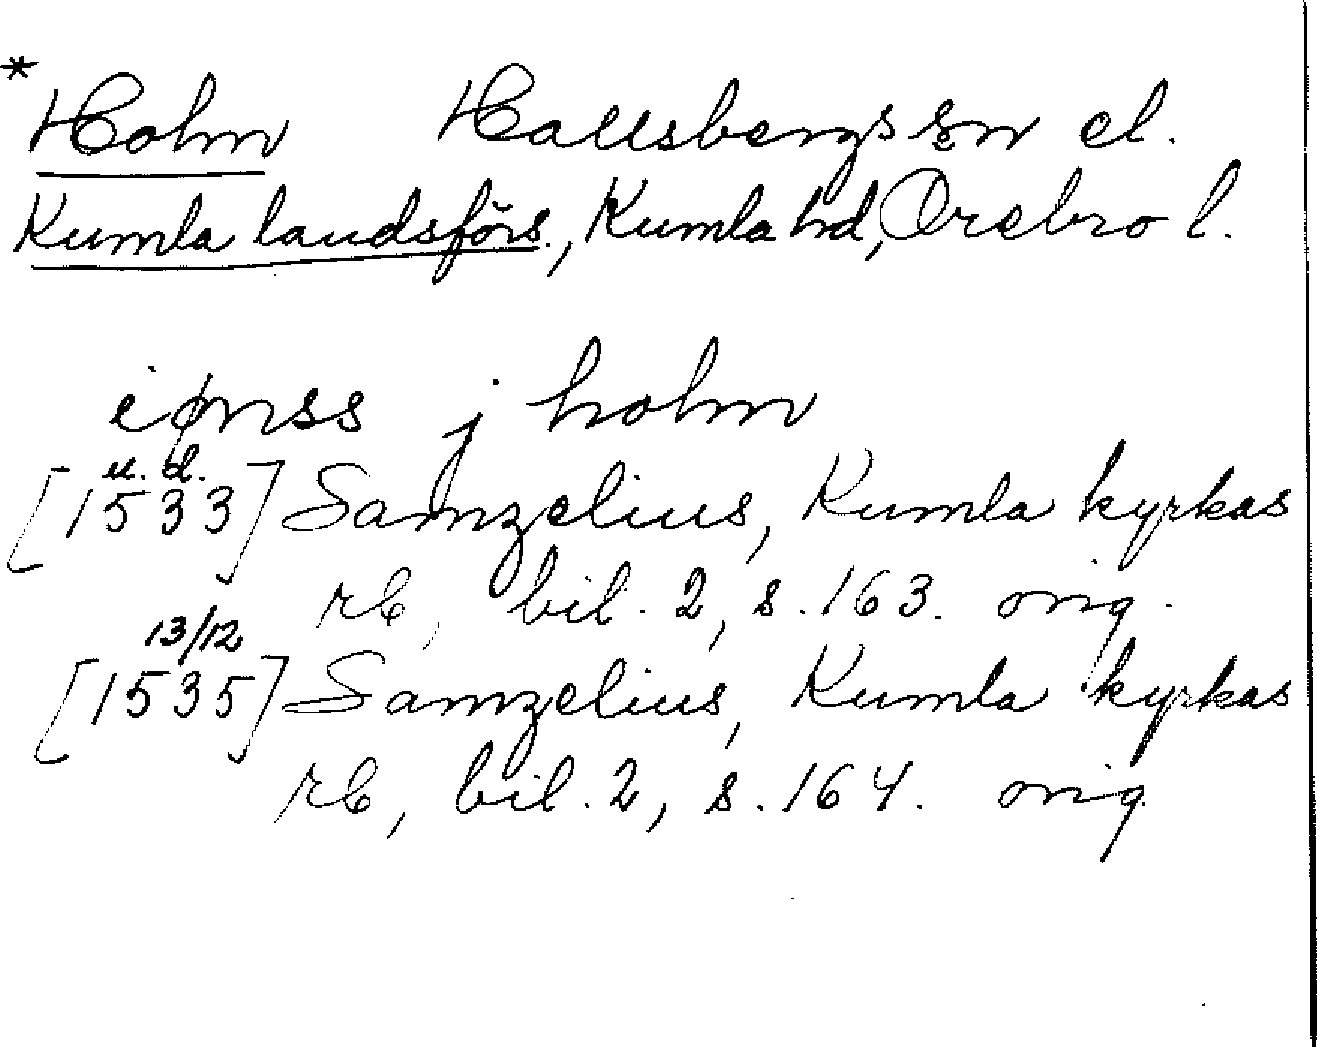 * Holm Hallsbergs sn el.
Kumla landsförs., Kumla hd, Örebro l.
j holm
u. d.
[1533] Samzelius, Kumla kyrkas
rb, bil. 2, s. 163. orig.
13/12
[1535] Samzelius, Kumla kyrkas
rb, bil. 2, s. 164. orig.